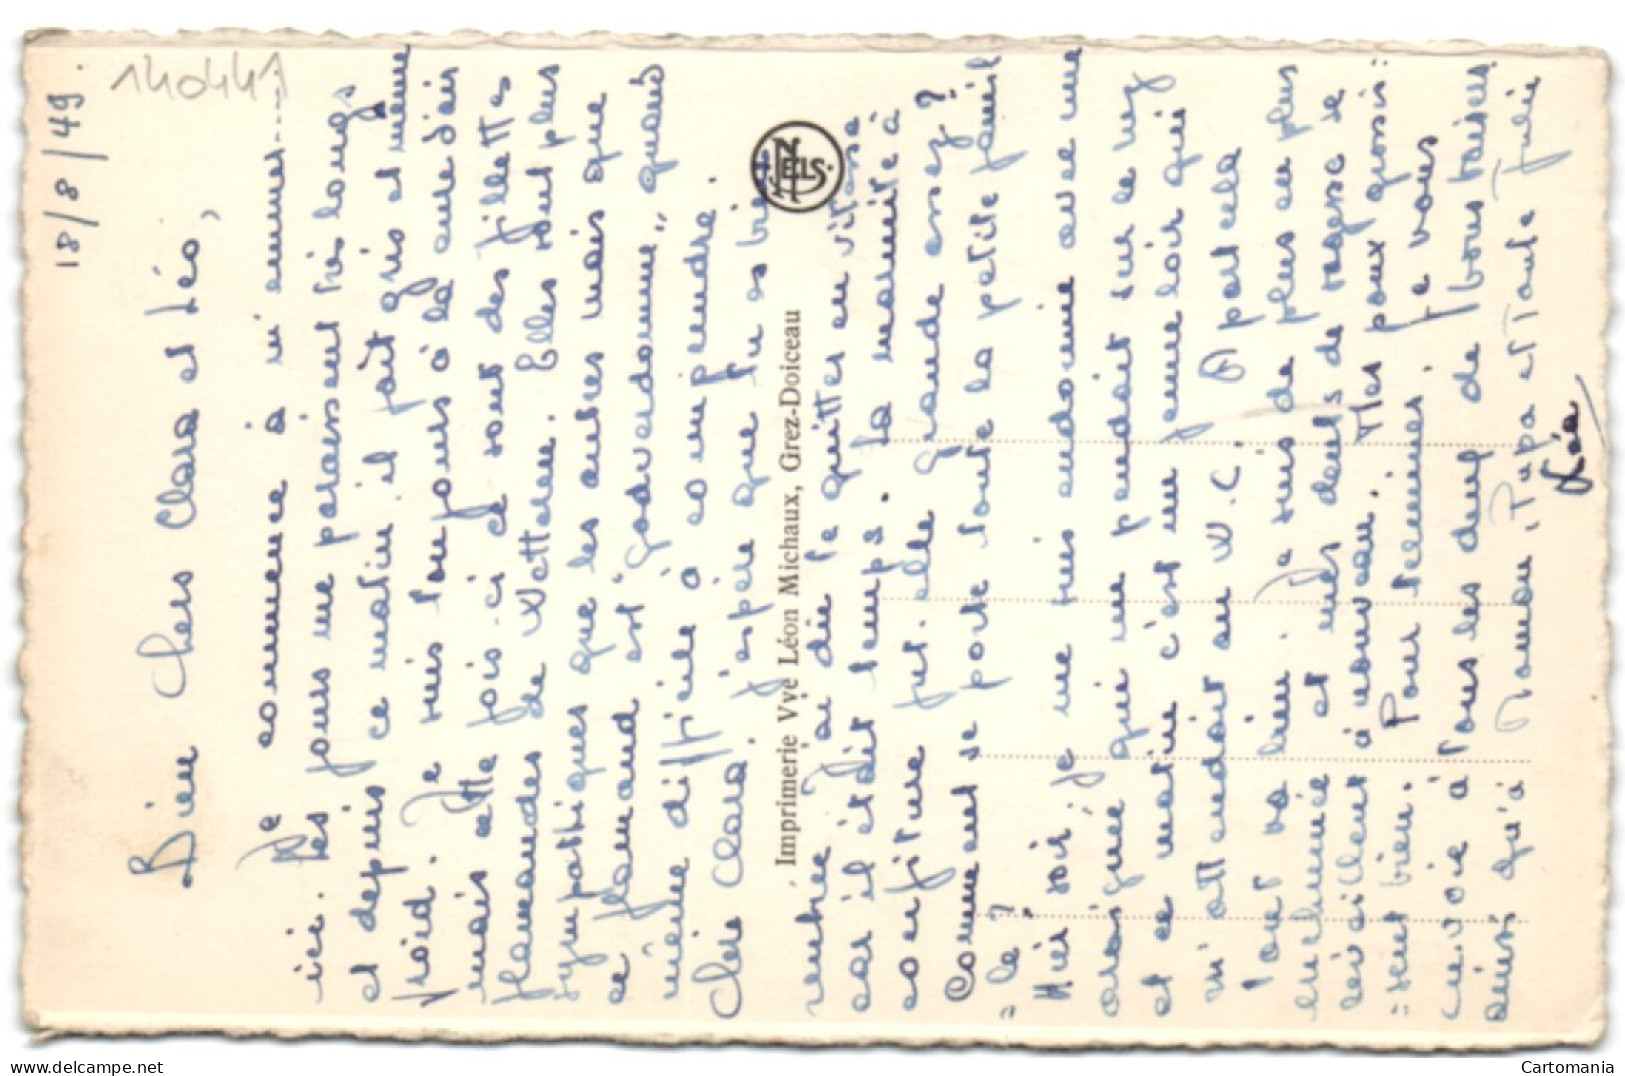 140441
18/8/49.
Bien Chers Clara et Léo,
Je commence à m'ennuyer....
ici. Les jours me paraissent très longs
et depuis ce matin il fait gris et même
froid. Je suis toujours à la cure d'air
mais cette fois-ci ce sont des fillettes
flamandes de Wetteren. Elles sont plus
sympathiques que les autres mais que
ce flamand est "godverdomme" quand
même difficile à comprendre.
Chère Clara, j'espère que tu es bien
rentrée. J'ai dû te quitter en vitesse
car il était temps. La marmite à
confiture fut-elle grande assez?
Comment se porte toute la petite famil
"le?
Hier soir, je me suis endormie avec une
araignée qui me pendait sur le nez
et ce matin c'est un jeune loir qui
m'attendait au W.C. A part cela
tout va bien. Je suis de plus en plus
enrhumée et mes dents de sagesse se
réveillent à nouveau. Mes poux grossis=
=sent bien. Pour terminer, je vous
envoie à tous les deux de bons baisers
ainsi qu'à Maman, Papa et Tante Julia
Léa
Imprimerie Vve Léon Michaux, Grez-Doiceau
NELS
Cartomania